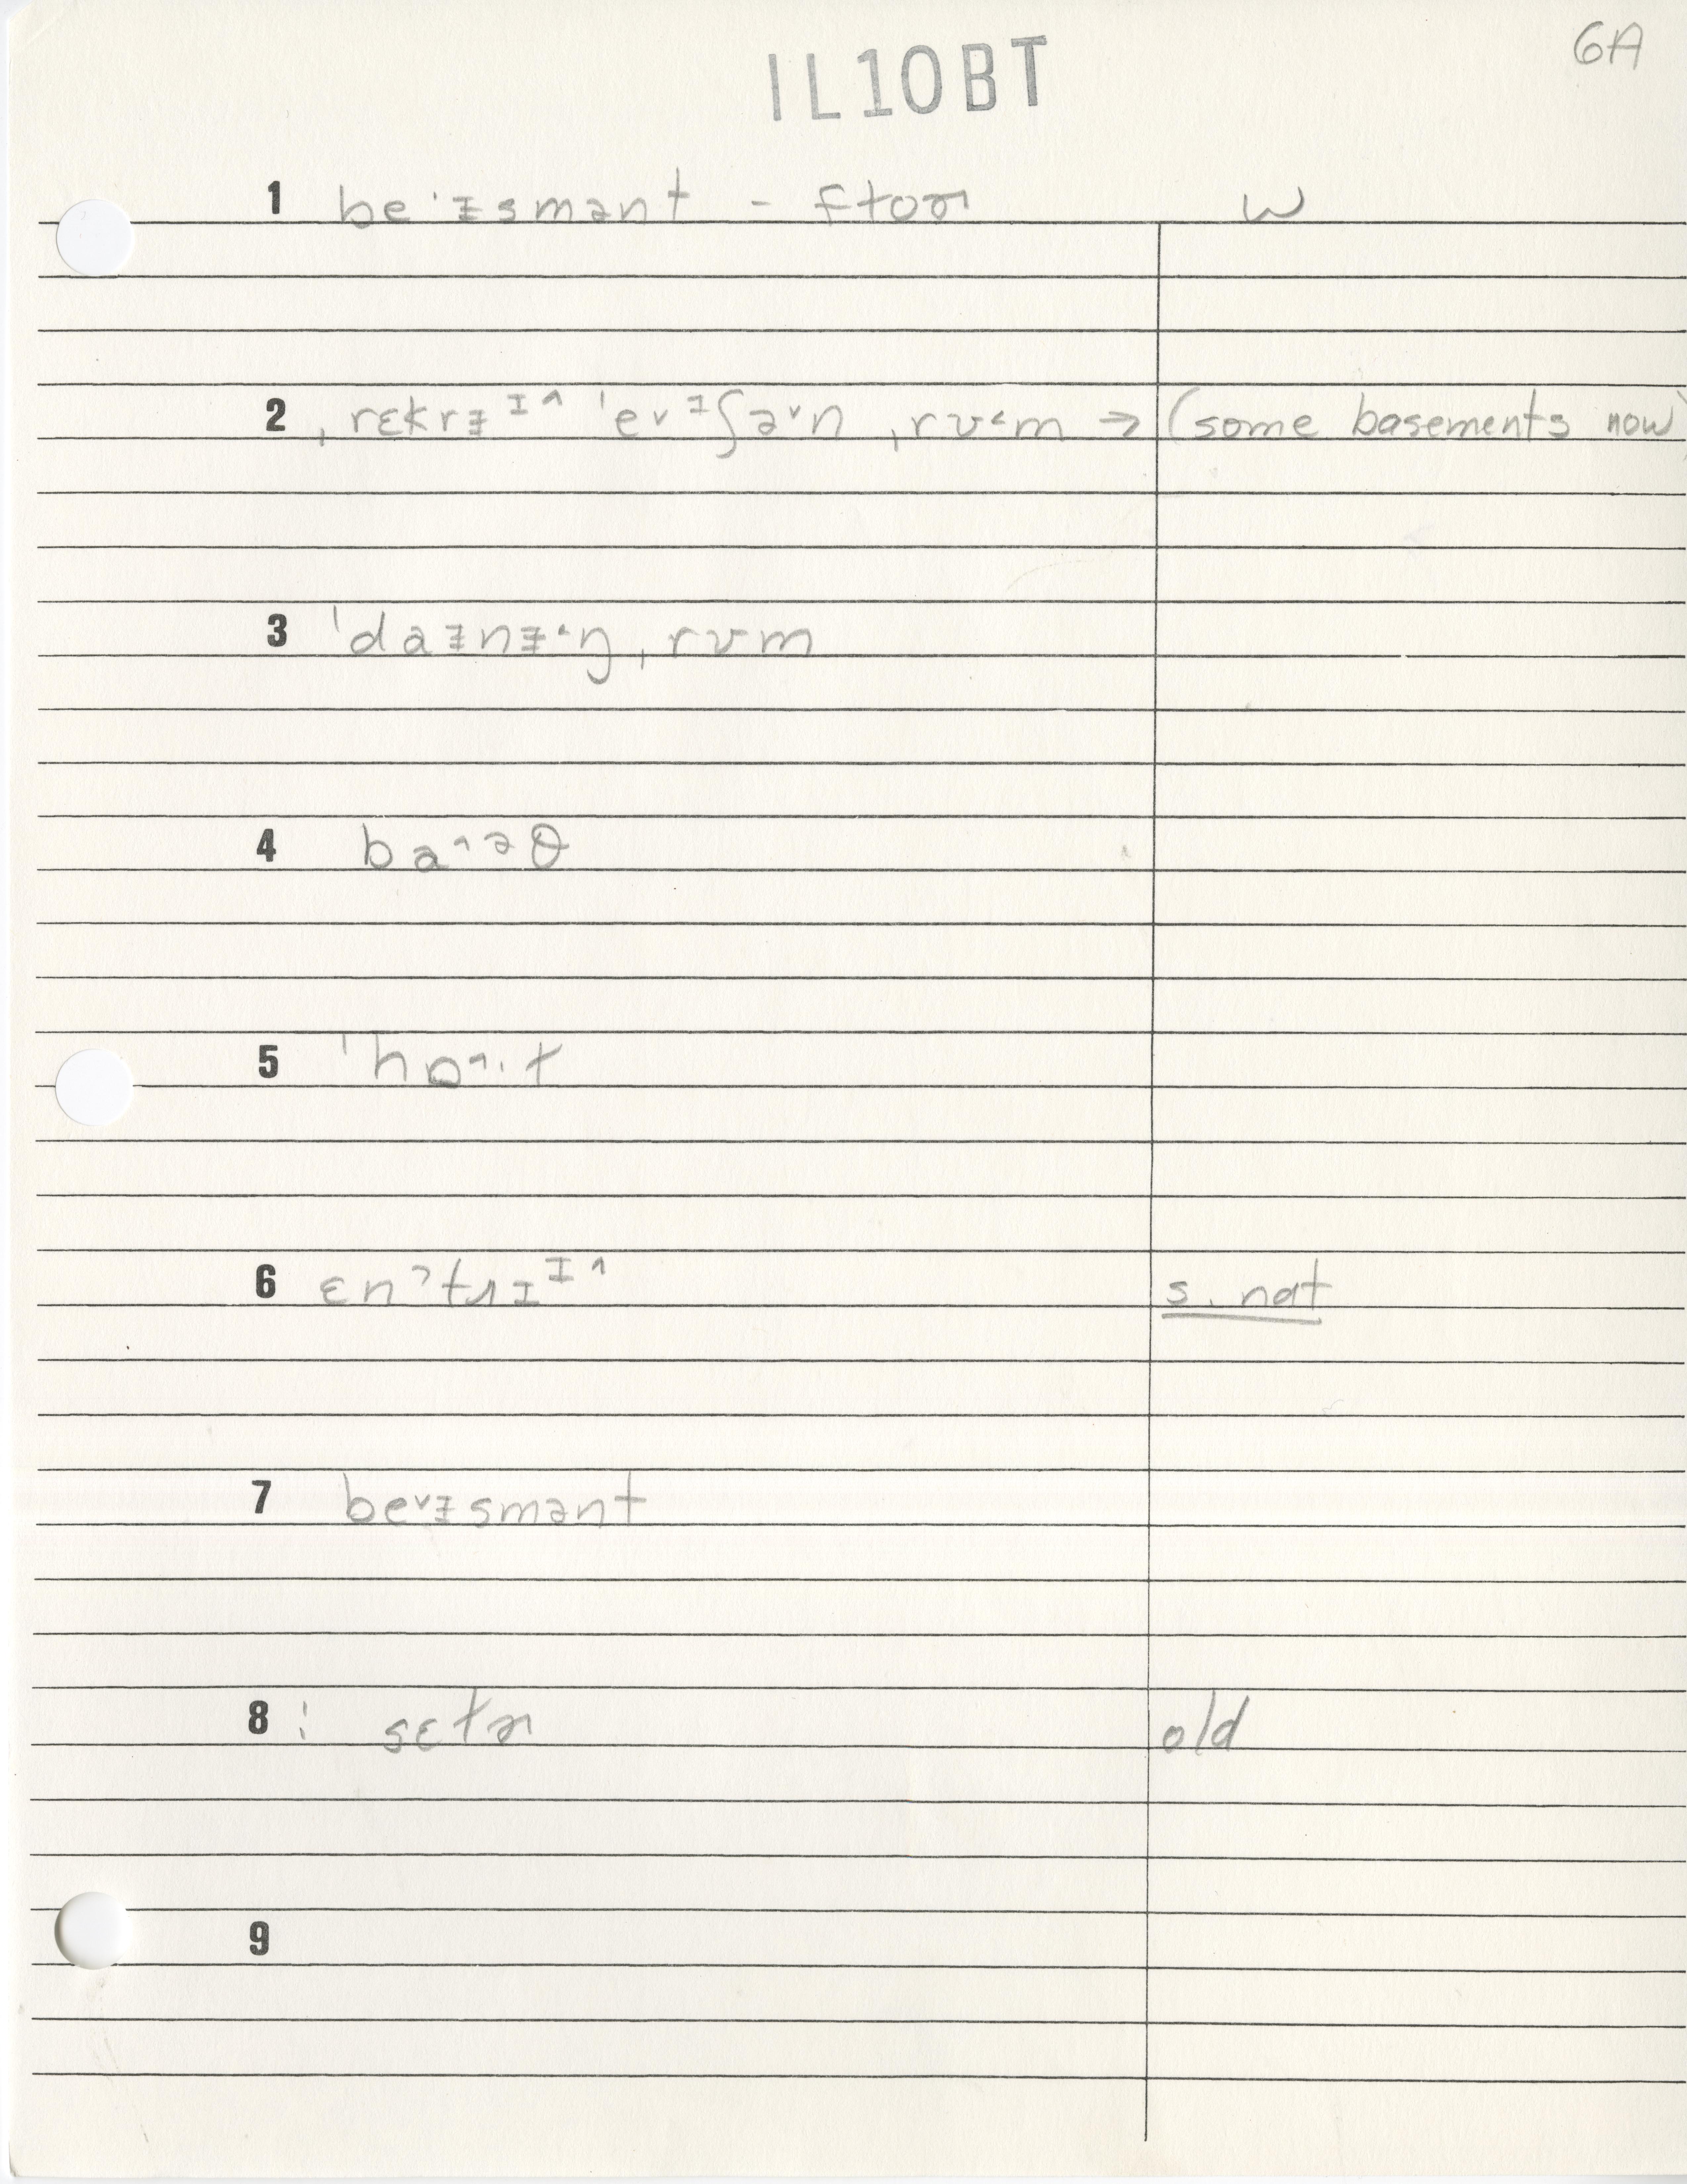 6A
IL10BT
1 beˈᵻsmənt - ftoɚ w
2 ˌrɛkrᵻᴵ^ ˈe˅ᵻʃə˅n ˌrʊ˂m → (some basements now)
3 ˈdaᵻnᵻ˂ŋˌrʊm
4 ba^əθ
5 ˈhɒ^·t
6 ɛnʔtɹɪᴵ^ s. nat
7 be˅ᵻsmənt
8 ⁝ sɛtɚ old
9